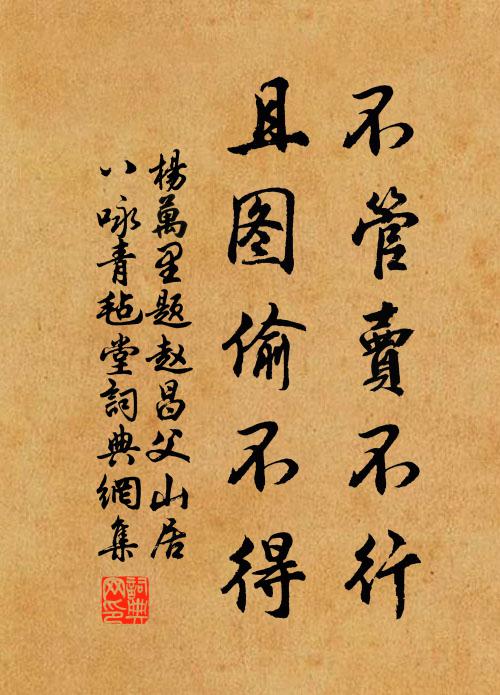 不管賣不行
且图偷不得
楊萬里题赵昌父山居
八咏青毡堂詞典網集
詞典网印